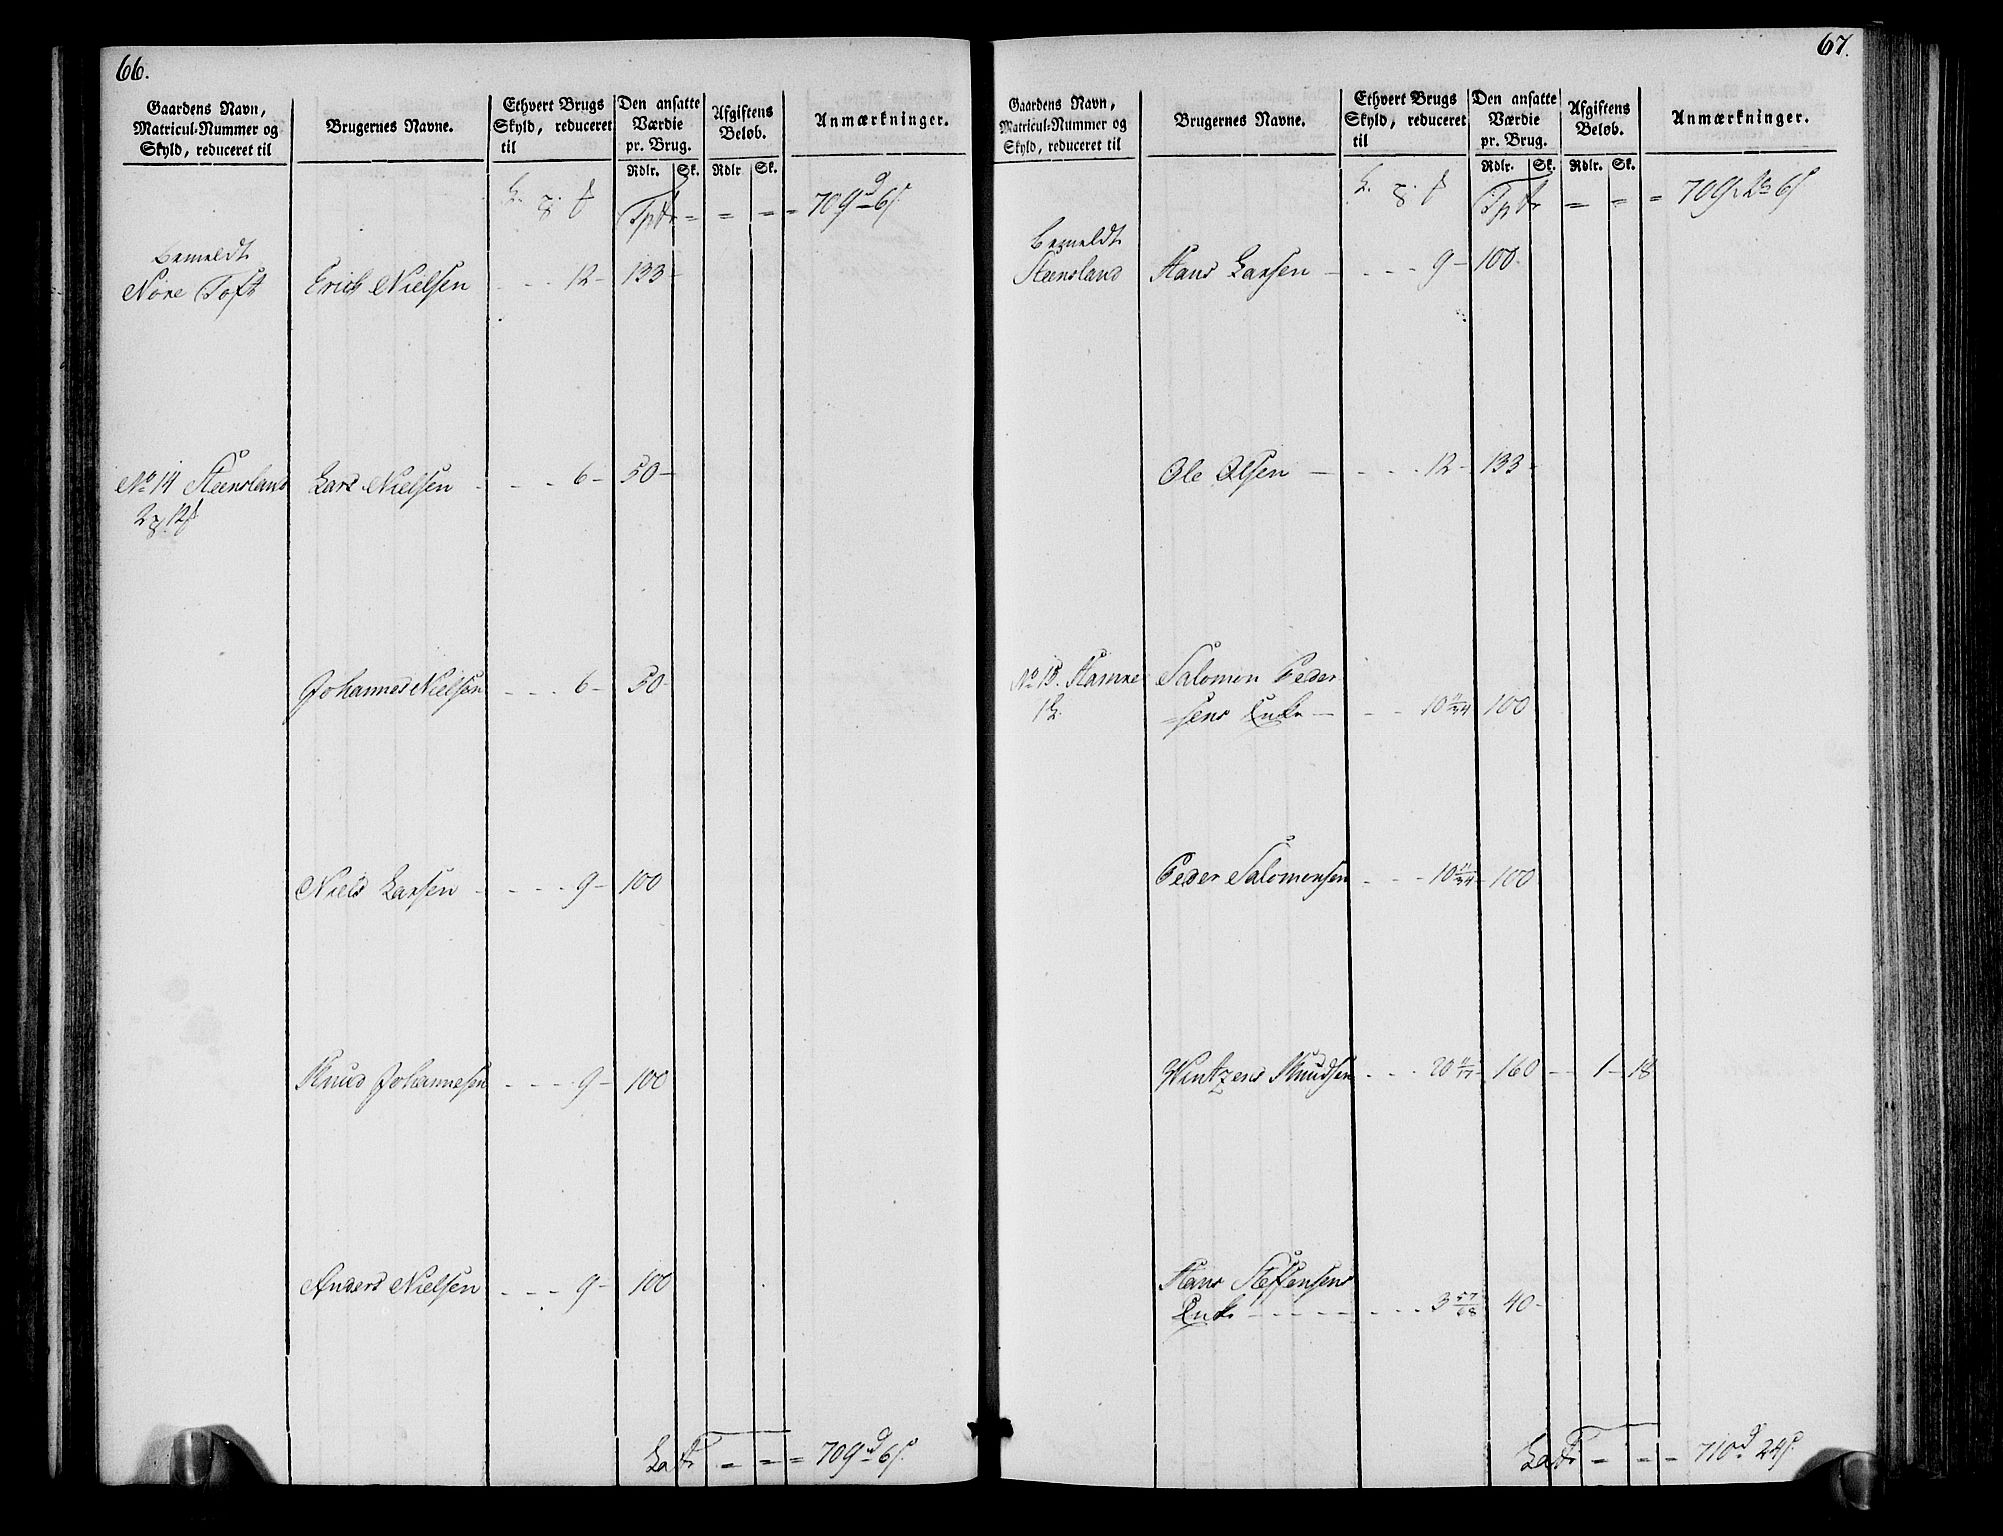 66.
Gaardens Navn, Matricul-Nummer og Skyld, reduceret til
Brugernes Navne.
Ethvert Brugs Skyld, reduceret til
Den ansatte Værdie pr. Brug.
Afgiftens Beløb.
Anmærkninger.
Rdlr. Sk. Rdlr. Sk.
Tptr = = = = 709 d 6 s
Bemeldt
Nore Toft Erich Nielsen - - - 12 - 133 -
No 14 Steensland Lars Nielsen - - - 6 - 50 -
2 12
Johannes Nielsen - - - 6 - 50 -
Niels Larsen - - - - 9 - 100
Knud Johannesen - - - 9 - 100
Anders Nielsen - - - 9 - 100
Latr = = = 709 d 6 s.
67.
Gaardens Navn, Matricul-Nummer og Skyld, reduceret til
Brugernes Navne.
Ethvert Brugs Skyld, reduceret til
Den ansatte Værdie pr. Brug.
Afgiftens Beløb.
Anmærkninger.
Rdlr. Sk. Rdlr. Sk.
Tptr = = = 709 d 6 s
Bemeldt
Steensland Hans Larsen - - - - 9 - 100
Ole Olsen - - - - 12 - 133 -
No 15. Hamre Salomon Peder
1
sens Enke - - - 10 100
Peder Salomonsen - - - 10 100
Wintzens Knudsen - - - 20 160 - - 1 - 18
Hans Steffensens
Enke - - - - - - - - 3 57/68 40 -
Latr = = = 710 d 24 s.